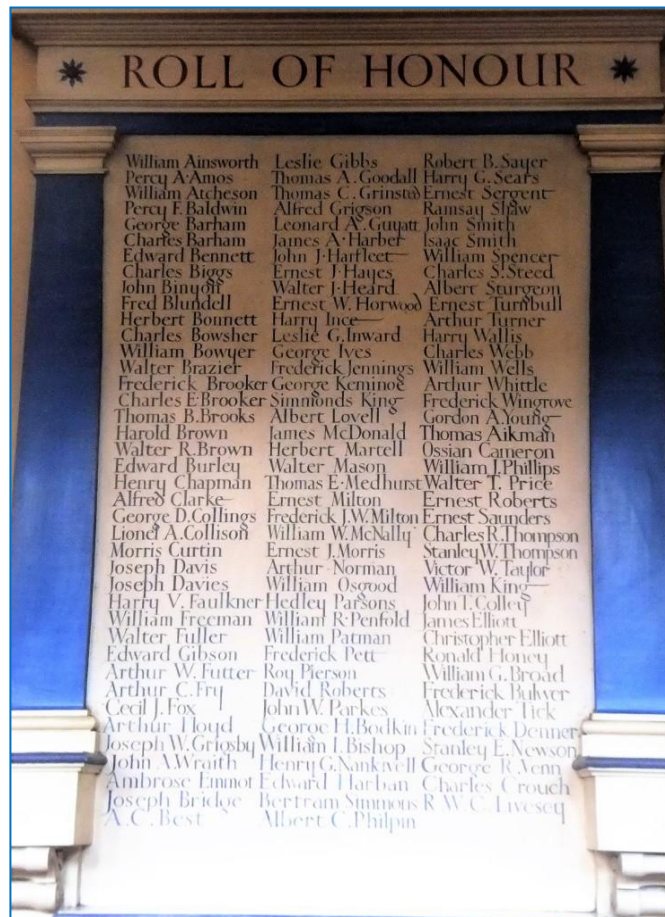 ROLL OF HONOUR
William Ainsworth
Percy A. Amos
William Atcheson
Percy F. Baldwin
George Barham
Charles Barham
Edward Bennett
Charles Biggs
John Binyon
Fred Blundell
Herbert Bonnett
Charles Bowsher
William Bowyer
Walter Brazier
Frederick Brooker
Charles E. Brooker
Thomas B. Brooks
Harold Brown
Walter R. Brown
Edward Burley
Henry Chapman
Alfred Clarke
George D. Collings
Lionel A. Collison
Morris Curtin
Joseph Davis
Joseph Davies
Harry V. Faulkner
William Freeman
Walter Fuller
Edward Gibson
Arthur W. Futter
Arthur C. Fry
Cecil J. Fox
Arthur Floyd
Joseph W. Grigsby
John A. Wraith
Ambrose Emmot
Joseph Bridge
A. C. Best
Leslie Gibbs
Thomas A. Goodall
Thomas C. Grinsted
Alfred Grigson
Leonard A. Guyatt
James A. Harber
John J. Harfleet
Ernest J. Hayes
Walter J. Heard
Ernest W. Horwood
Harry Ince
Leslie G. Inward
George Ives
Frederick Jennings
George Keminoe
Simmonds King
Albert Lovell
James McDonald
Herbert Martell
Walter Mason
Thomas E. Medhurst
Ernest Milton
Frederick J. W. Milton
William W. McNally
Ernest J. Morris
Arthur Norman
William Osgood
Hedley Parsons
William R. Penfold
William Patman
Frederick Pett
Roy Pierson
David Roberts
John W. Parkes
George H. Bodkin
William I. Bishop
Henry G. Nankivell
Edward Harban
Bertram Simmons
Albert C. Philpin
Robert B. Sayer
Harry G. Sears
Ernest Sergent
Ramsay Shaw
John Smith
Isaac Smith
William Spencer
Charles S. Steed
Albert Sturgeon
Ernest Turnbull
Arthur Turner
Harry Wallis
Charles Webb
William Wells
Arthur Whittle
Frederick Wingrove
Gordon A. Young
Thomas Aikman
Ossian Cameron
William J. Phillips
Walter T. Price
Ernest Roberts
Ernest Saunders
Charles R. Thompson
Stanley W. Thompson
Victor W. Taylor
William King
John T. Colley
James Elliott
Christopher Elliott
Ronald Honey
William G. Broad
Frederick Bulwer
Alexander Tick
Frederick Denner
Stanley E. Newson
George R. Venn
Charles Crouch
R. W. C. Livesey